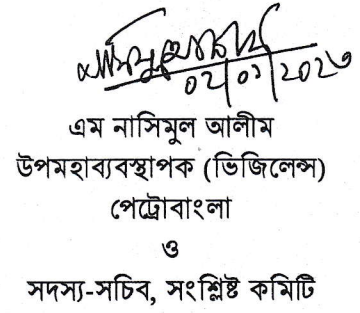 ০২/০১/২০২৩
এম নাসিমুল আলীম
উপমহাব্যবস্থাপক (ভিজিলেন্স)
পেট্রোবাংলা
ও
সদস্য-সচিব, সংশ্লিষ্ট কমিটি